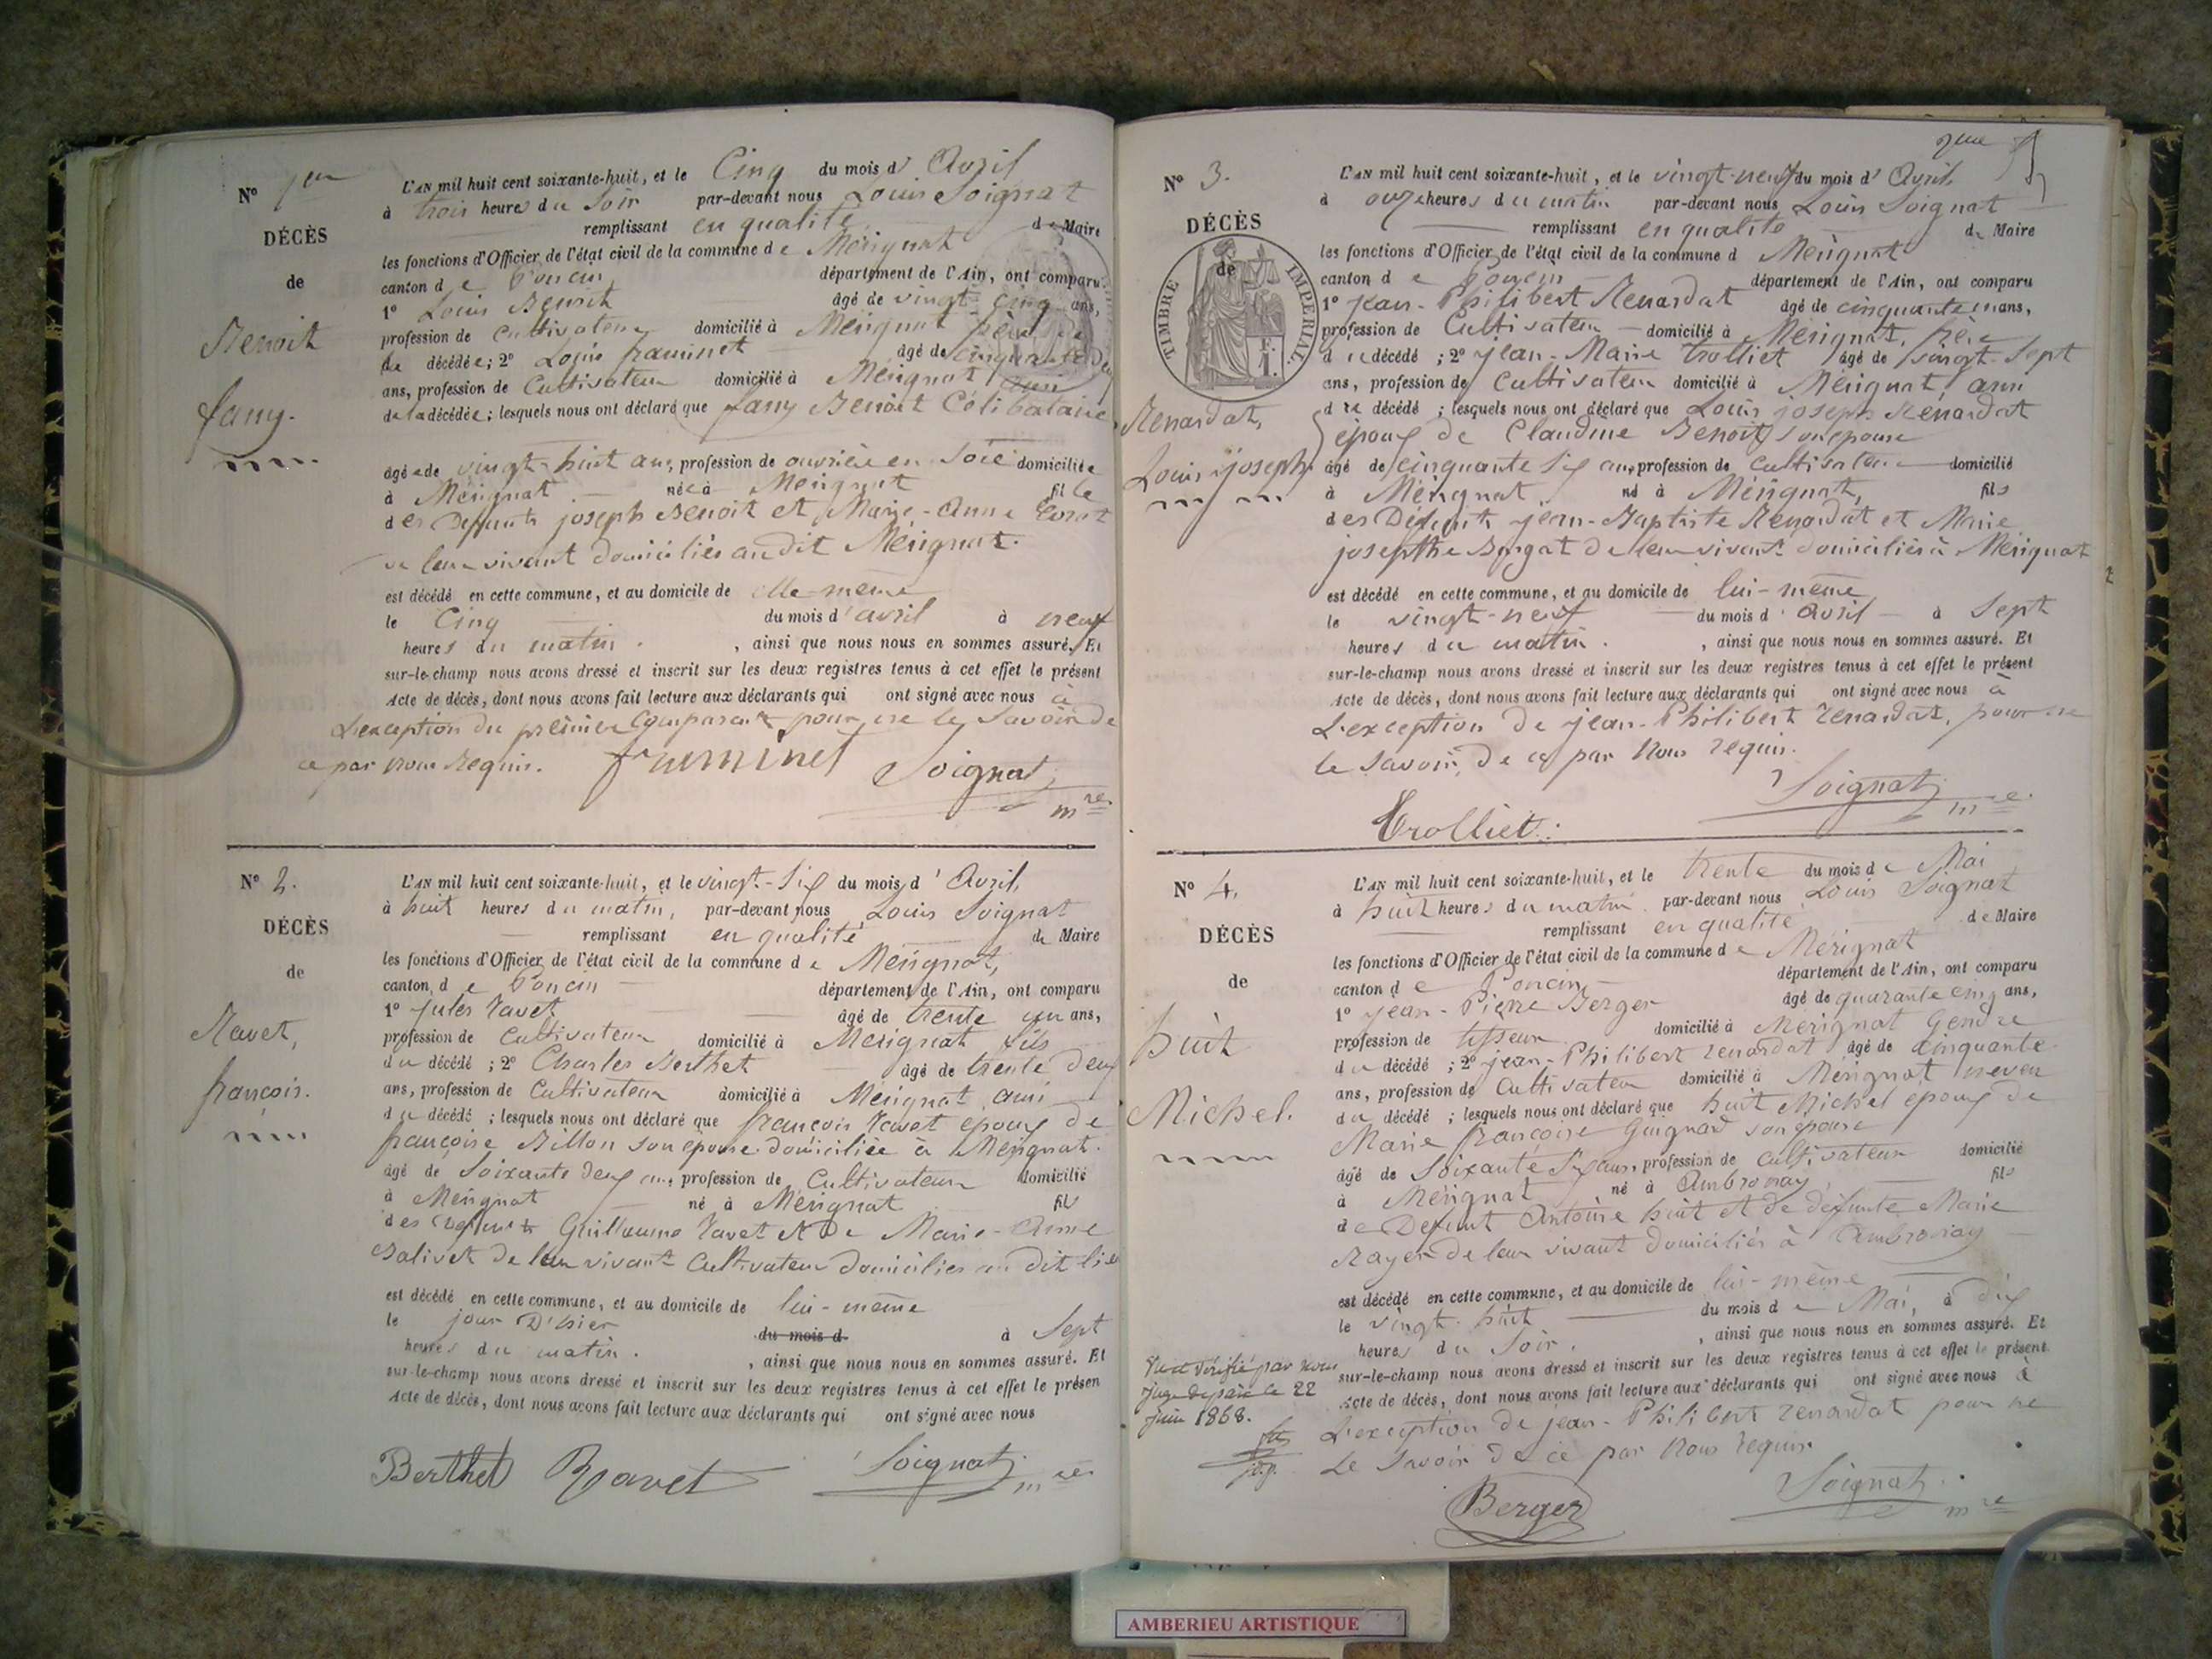 N° 1er
DÉCÈS
de
Benoit
fany.
L'AN mil huit cent soixante-huit, et le Cinq du mois d'Avril
à trois heures du Soir par-devant nous Louis Soignat
remplissant en qualité de Maire
les fonctions d'Officier de l'état civil de la commune de Mérignat
canton de Poncin département de l'Ain, ont comparu
1° Louis Benoit âgé de vingt-cinq ans,
profession de Cultivateur domicilié à Mérignat frère
de décédée; 2° Louis framinet âgé de cinquante deux
ans, profession de Cultivateur domicilié à Mérignat ami
de la décédée; lesquels nous ont déclaré que fany Benoit Célibataire
âgée de vingt-huit ans, profession de ouvrière en Soie domiciliée
à Mérignat née à Mérignat fille
des Défunts joseph Benoit et Marie-Anne
de leur vivant domiciliés audit Mérignat.
est décédé en cette commune, et au domicile de elle-même
le Cinq du mois d'avril à neuf
heures du matin. , ainsi que nous nous en sommes assuré. Et
sur-le-champ nous avons dressé et inscrit sur les deux registres tenus à cet effet le présent
Acte de décès, dont nous avons fait lecture aux déclarants qui ont signé avec nous à
L'exception du premier Comparant pour ne le Savoir de
ce par nous requis. framinet Soignat
mre
N° 2.
DÉCÈS
de
Ravet,
françois.
L'AN mil huit cent soixante-huit, et le vingt-Six du mois d'Avril,
à huit heures du matin, par-devant nous Louis Soignat
remplissant en qualité de Maire
les fonctions d'Officier de l'état civil de la commune de Mérignat,
canton de Poncin département de l'Ain, ont comparu
1° Jules Ravet âgé de trente un ans,
profession de Cultivateur domicilié à Mérignat fils
du décédé; 2° Charles Berthet âgé de trente deux
ans, profession de Cultivateur domicilié à Mérignat ami
du décédé; lesquels nous ont déclaré que françois Ravet époux de
françoise Billon son épouse domiciliée à Mérignat.
âgé de Soixante deux ans, profession de Cultivateur domicilié
à Mérignat né à Mérignat fils
des défunts Guillaume Ravet et De Marie-Anne
Balivet de leur vivant Cultivateur domiciliés au dit lieu
est décédé en cette commune, et au domicile de lui-même
le jour D'hier du mois d à Sept
heures du matin. , ainsi que nous nous en sommes assuré. Et
sur-le-champ nous avons dressé et inscrit sur les deux registres tenus à cet effet le présen
Acte de décès, dont nous avons fait lecture aux déclarants qui ont signé avec nous
Berthet Ravet Soignat
mre
N° 3.
DÉCÈS
de
TIMBRE IMPÉRIAL
Renardat,
Louis joseph.
L'AN mil huit cent soixante-huit, et le vingt-neuf du mois d'Avril,
à onze heures du matin par-devant nous Louis Soignat
remplissant en qualité de Maire
les fonctions d'Officier de l'état civil de la commune d Mérignat
canton de Poncin département de l'Ain, ont comparu
1° jean-Philibert Renardat âgé de cinquante un ans,
profession de Cultivateur domicilié à Mérignat, frère
du décédé; 2° jean-Marie Trolliet âgé de vingt-Sept
ans, profession de Cultivateur domicilié à Mérignat, ami
du décédé; lesquels nous ont déclaré que Louis joseph Renardat
époux de Claudine Benoit, son épouse
âgé de cinquante Six ans, profession de Cultivateur domicilié
à Mérignat, né à Mérignat, fils
des Défunts jean-Baptiste Renardat et Marie
josepthe de leur vivant domiciliés à Mérignat
est décédé en cette commune, et au domicile de lui-même
le vingt-neuf du mois d'avril à Sept
heures du matin. , ainsi que nous nous en sommes assuré. Et
sur-le-champ nous avons dressé et inscrit sur les deux registres tenus à cet effet le présent
Acte de décès, dont nous avons fait lecture aux déclarants qui ont signé avec nous à
L'exception de jean-Philibert renardat, pour ne
le savoir, de ce par Nous requis.
Soignat
mre
Trolliet
N° 4.
DÉCÈS
de
huit
Michel.
L'AN mil huit cent soixante-huit, et le trente du mois de Mai
à huit heures du matin par-devant nous Louis Soignat
remplissant en qualité de Maire
les fonctions d'Officier de l'état civil de la commune de Mérignat
canton de Poncin département de l'Ain, ont comparu
1° jean-Pierre Berger âgé de quarante cinq ans,
profession de tisseur domicilié à Mérignat Gendre
du décédé; 2° jean-Philibert renardat âgé de cinquante
ans, profession de Cultivateur domicilié à Mérignat neveu
du décédé; lesquels nous ont déclaré que huit Michel époux de
Marie françoise Guignard son épouse
âgé de Soixante Six ans, profession de Cultivateur domicilié
à Mérignat né à Ambronay fils
de Défunt Antoine huit et de défunte Marie
Rayer de leur vivant domiciliés à Ambronay
est décédé en cette commune, et au domicile de lui-même
le vingt-huit du mois de Mai, à dix
heures du Soir. , ainsi que nous nous en sommes assuré. Et
sur-le-champ nous avons dressé et inscrit sur les deux registres tenus à cet effet le présent
Acte de décès, dont nous avons fait lecture aux déclarants qui ont signé avec nous à
L'exception de jean-Philibert renardat pour ne
Le Savoir de ce par Nous requis
Vu et vérifié par nous
Juge de paix le 22
juin 1868.
Soignat
mre
Berger
AMBERIEU ARTISTIQUE